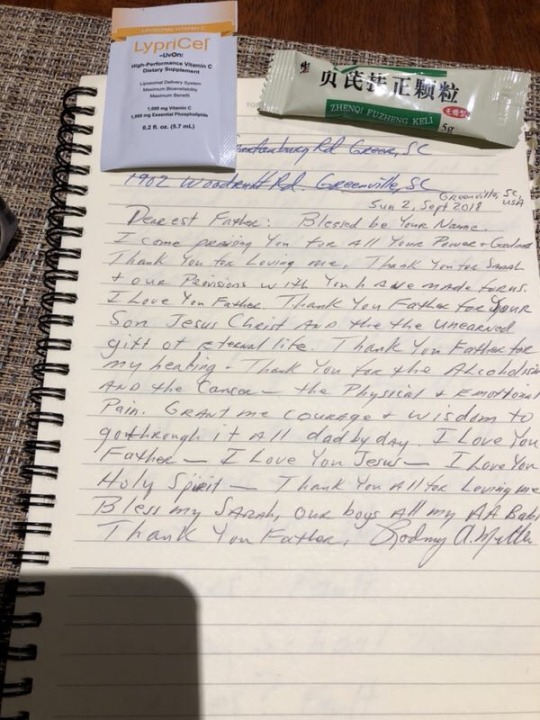 LIPOSOMAL VITAMIN C
LypriCel
-LivOn-
High-Performance Vitamin C
Dietary Supplement
Liposomal Delivery System
Maximum Bioavailability
Maximum Benefit
1,000 mg Vitamin C
1,000 mg Essential Phospholipids
0.2 fl oz. (5.7 mL)
贝芪扶正颗粒
ZHENQI FUZHENG KELI
5g
Rd Greer, SC
1902 Woodruff Rd. Greenville, SC
Greenville, SC,
USA
Sun 2, Sept 2018
Dearest Father: Blessed be Your Name.
I come praising You for All Your Power + Goodness
Thank You for Loving me. Thank You for Sarah
+ our Provisions with You have made for us.
I Love You Father. Thank You Father for Your
Son Jesus Christ AND the the unearned
gift of eternal life. Thank You Father for
my healing - Thank You for the Alcoholism
AND the Cancer - the Physical + Emotional
Pain. Grant me courage + wisdom to
go through it All dad by day. I Love You
Father - I Love You Jesus - I Love You
Holy Spirit - Thank You All for Loving me
Bless my Sarah, our boys All my AA Babi
Thank You Father, Rodney A.